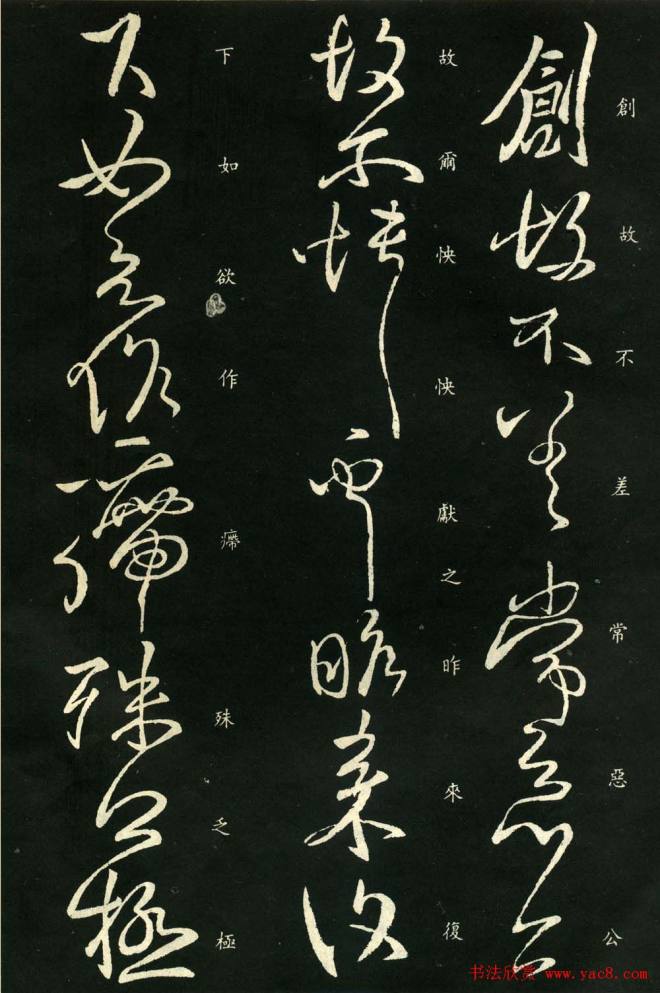 創故不差常惡公
故爾怏怏獻之昨來復
下如欲作㿃殊乏極
书法欣赏 www.yac8.com